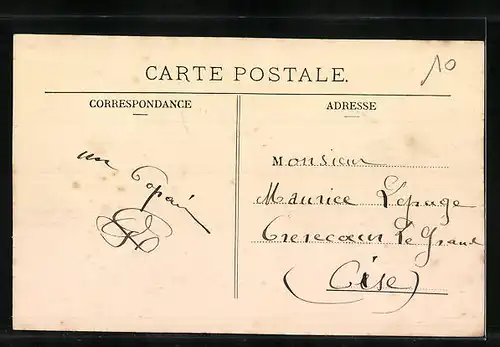 10
CARTE POSTALE.
CORRESPONDANCE
ADRESSE
un
Copain
Monsieur
Maurice Lepage
Crevecœur Le Grand
(Oise)